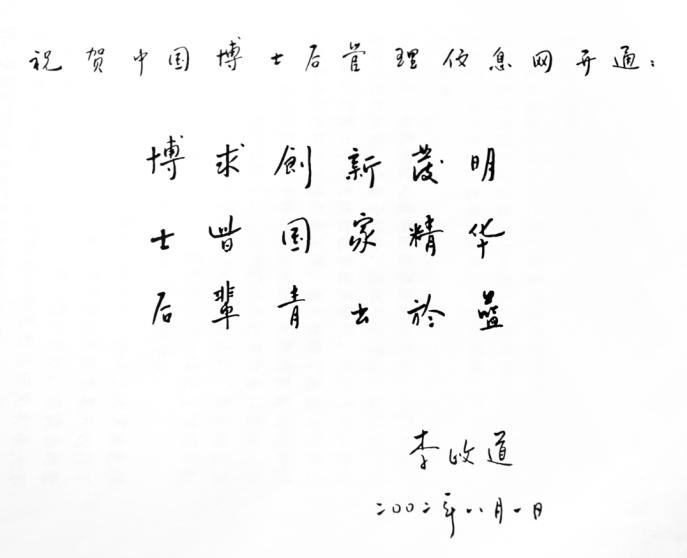 祝贺中国博士后管理信息网开通：
博求創新發明
士皆国家精华
后輩青出於藍
李政道
二〇〇二年八月一日